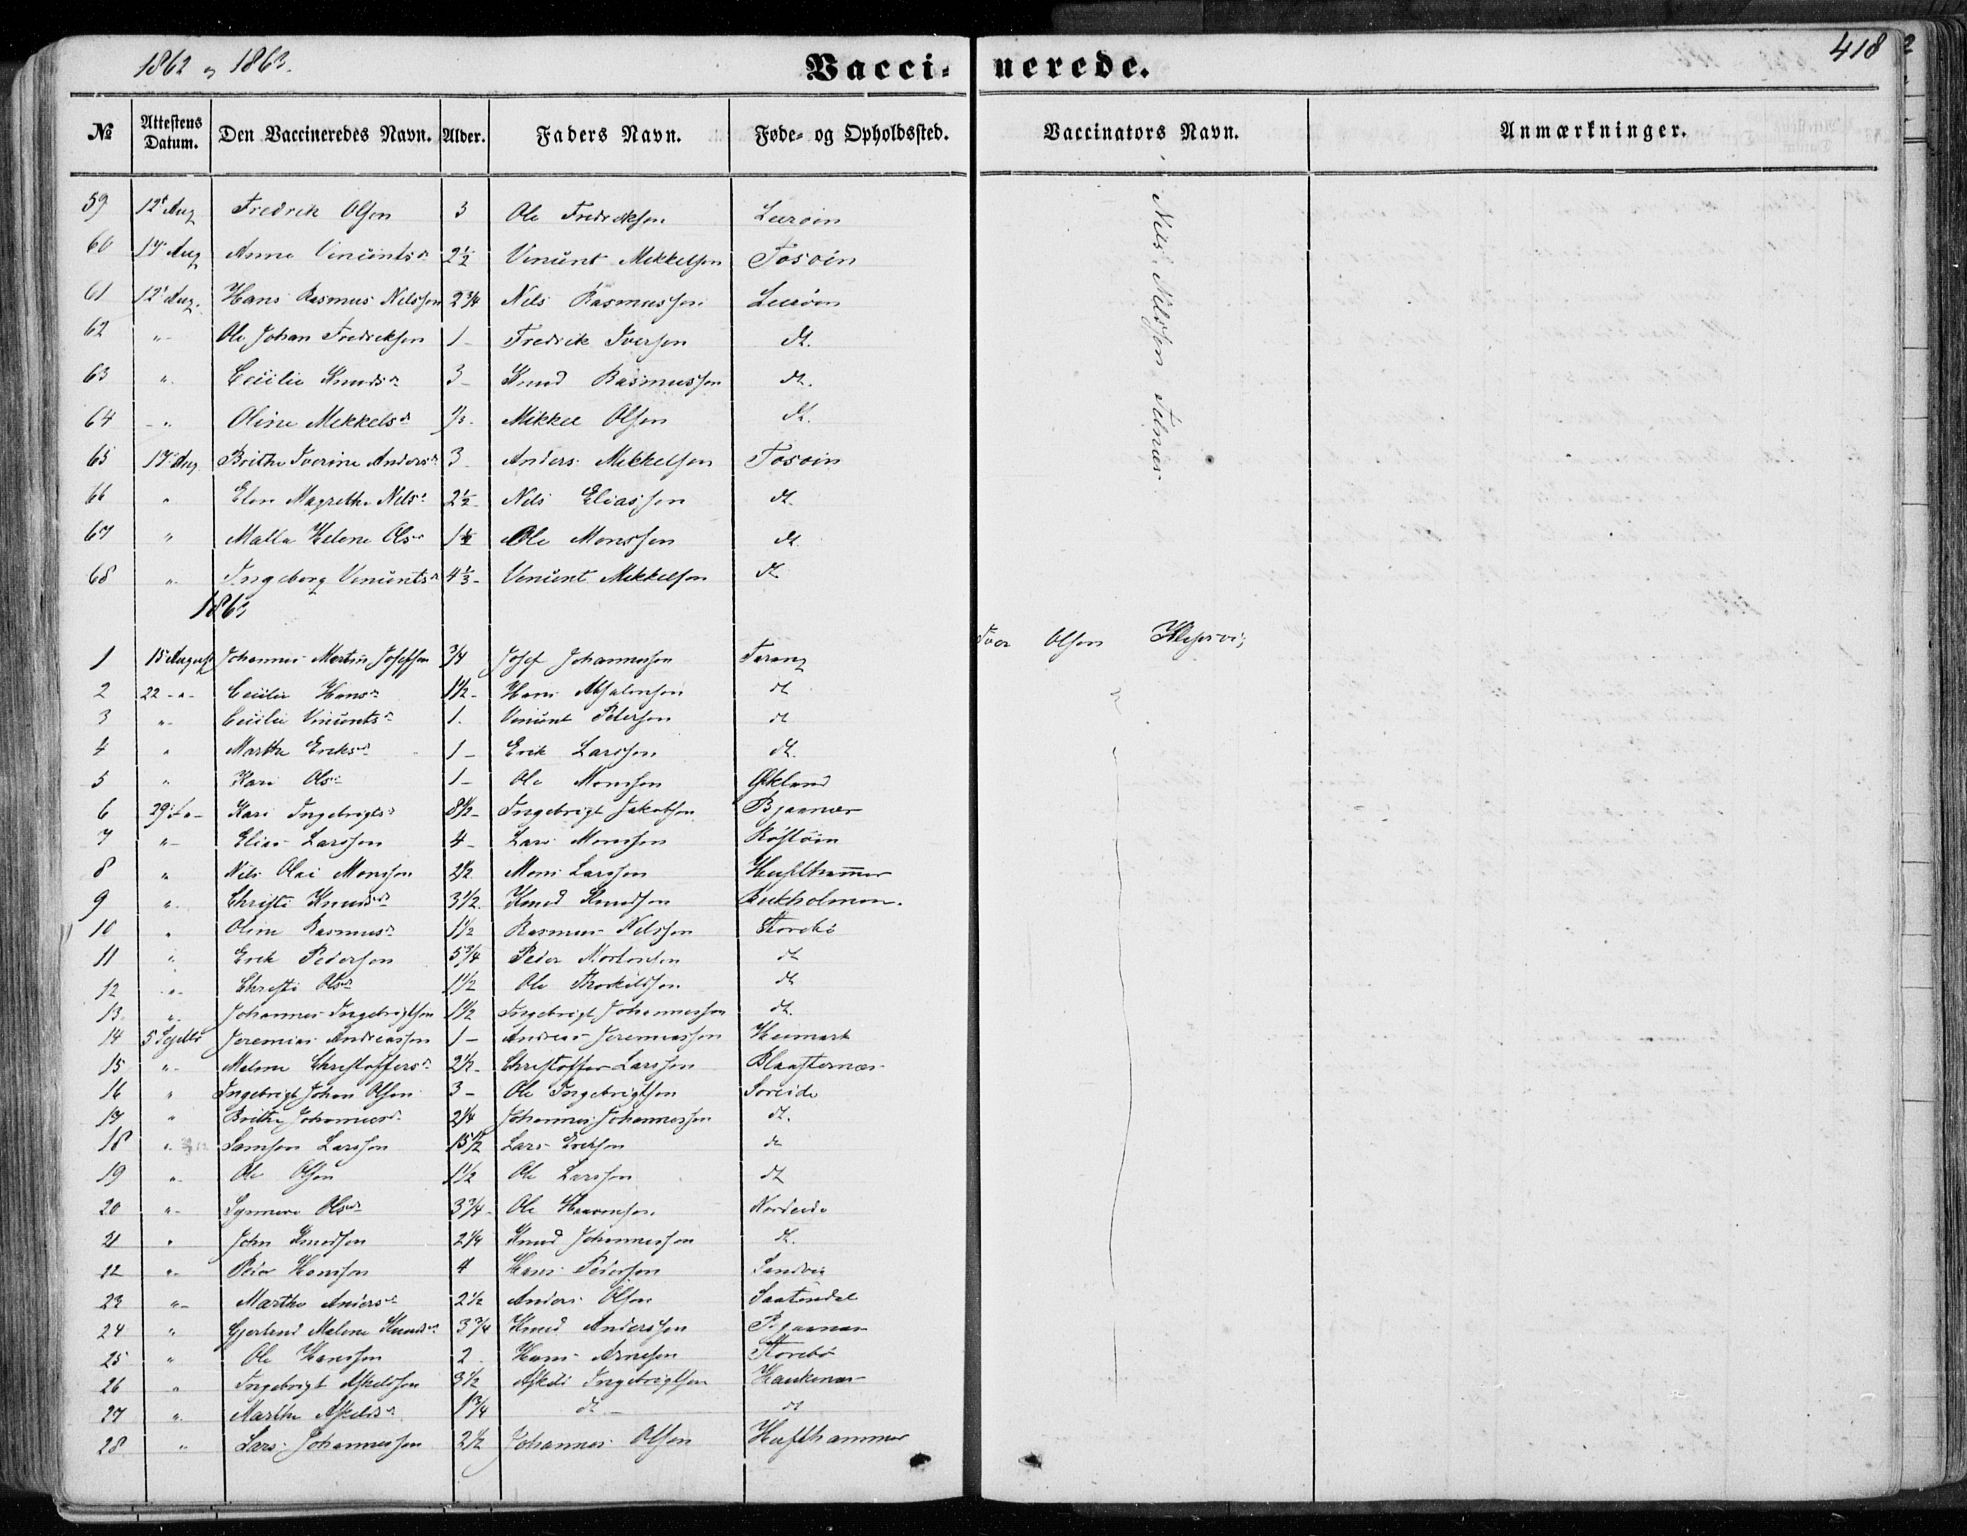 1862 og 1863.
Vaccinerede.
418
№ Attestens Datum. Den Vaccineredes Navn. Alder. Faders Navn. Føde- og Opholdssted. Vaccinators Navn. Anmærkninger.
59 12t Aug Fredrik Olsen 3 Ole Fredriksen Leerøin
60 17 Aug Anne Vincents 2½ Vincent Mikkelsen Tosøin
61 12t Aug. Hans Rasmus Nilssen 2¾ Nils Rasmussen Leerøen
62 " Ole Johan Fredriksen 1 Fredrik Iversen dt.
63 " Cecilie Knudsd 3 Knud Rasmussen dt.
64 " Oline Mikkelsd Mikkel Olsen dt.
65 17 Aug Brithe Iverine Andersd 3 Anders Mikkelsen Tosøin
66 " Elen Magrethe Nilsd 2½ Nils Eliassen dt.
67 " Malla Helene Olsd 1½ Ole Monssen dt.
68 " Ingeborg Vincentsd 4⅓ Vincent Mikkelsen dt
Nils Nilssen
1863
1 15 August Johannes Martin Josefsen ¾ Josef Johannessen Iver Olsen
2 22 " Cecilie Hansd 1½ Hans Absalonsen dt
3 " Cecilie Vincentsd 1. Vincent Petersen dt
4 " Marthe Eriksd 1 Erik Larssen dt.
5 " Kari Olsd 1 Ole Monssen Økland
6 29 Kari Ingebrigtsd 8½ Ingebrigt Jakobsen Bjaanæs
7 " Elias Larssen 4 Lars Monssen
8 " Nils Olai Monssen 2½ Mons Larssen Hufthammer
9 " Christi Knudsd 3½ Knud Knudsen Bukholmen.
10 " Oline Rasmusd 1½ Rasmus Nilssen Storebø
11 " Erik Pedersen 5¾ Peder Mortensen dt
12 " Christi Olsd 1½ Ole Thorkildsen dt
13 " Johannes Ingebrigtsen 1½ Ingebrigt Johannessen dt.
14 5 Septbr Jeremias Andreassen 1 Andreas Jeremiassen Heimark
15 " Malene Christoffersd 2½ Christoffer Larssen Blaasternæs
16 " Ingebrigt Johan Olsen 3 Ole Ingebrigtsen Søreide
17 " Brithe Johannesd 2¼ Johannes Johannessen dt.
18 " Samson Larssen 15½ Lars Eriksen dt
19 " Ole Olsen 1½ Ole Larssen dt
20 " Synneve Olsd 3¾ Ole Nordeide
21 " John Knudsen 2¼ Knud Johannessen dt.
22 " Peder Hanssen 4 Hans Pedersen Sandvig
23 " Marthe Andersd 2½ Anders Olsen
24 " Gjertrud Malene Knudsd 3¾ Knud Anderssen Bjaanæs
25 " Ole Hanssen 2 Hans Arnesen Storebø
26 " Ingebrigt Askeldsen 3½ Askild Ingebrigtsen Haukenæs
27 " Marthe Askeldsd 1¾ dt dt
28 " Lars Johannessen 2½ Johannes Olsen Hufthammer